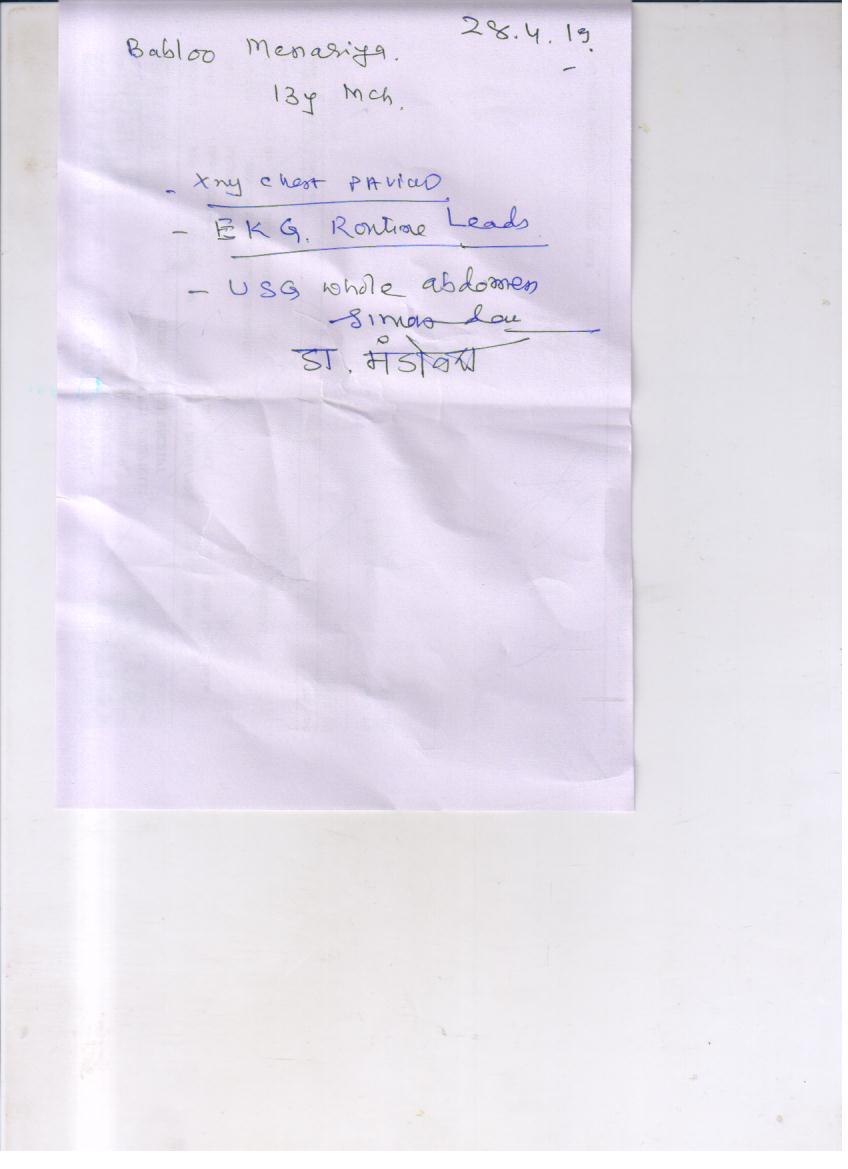 28.4.19.
Babloo Menariya.
13y Mch.
- Xray chest PA view
- EKG. Routine Leads
- USG whole abdomen
डा.